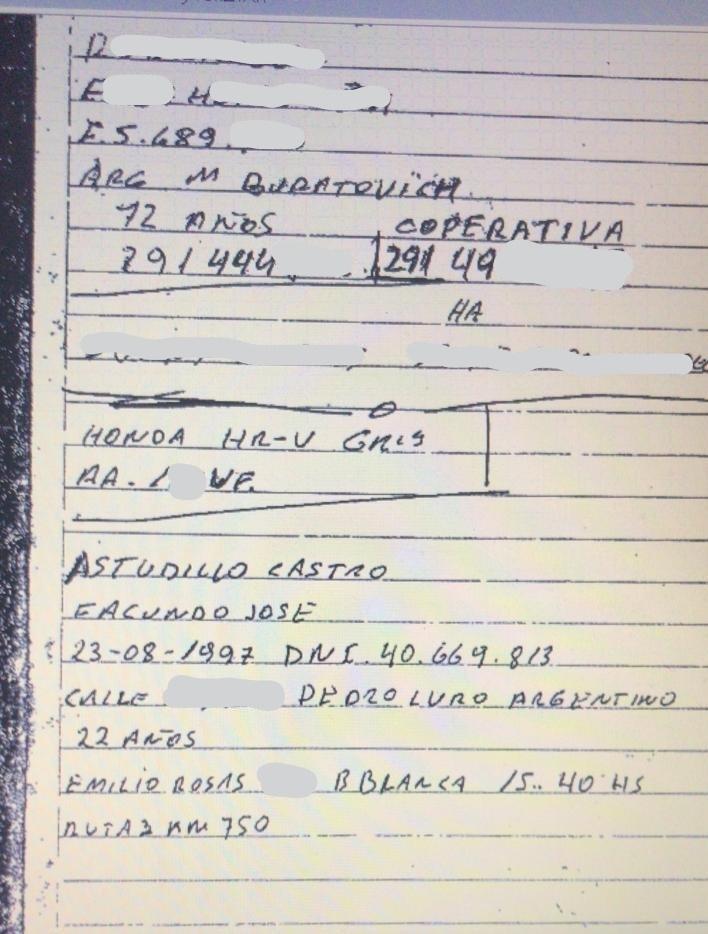 E.5.689.
ARG M BURATOVICH
72 AÑOS COPERATIVA
291 444 291 49
HA
HONDA HR-V GRIS
AA. 1 VF.
ASTUDILLO CASTRO
FACUNDO JOSE
23-08-1997 DNI. 40.669.813
CALLE PEDRO LURO ARGENTINO
22 AÑOS
EMILIO ROSAS B BLANCA 15.. 40 HS
RUTA 3 KM 750